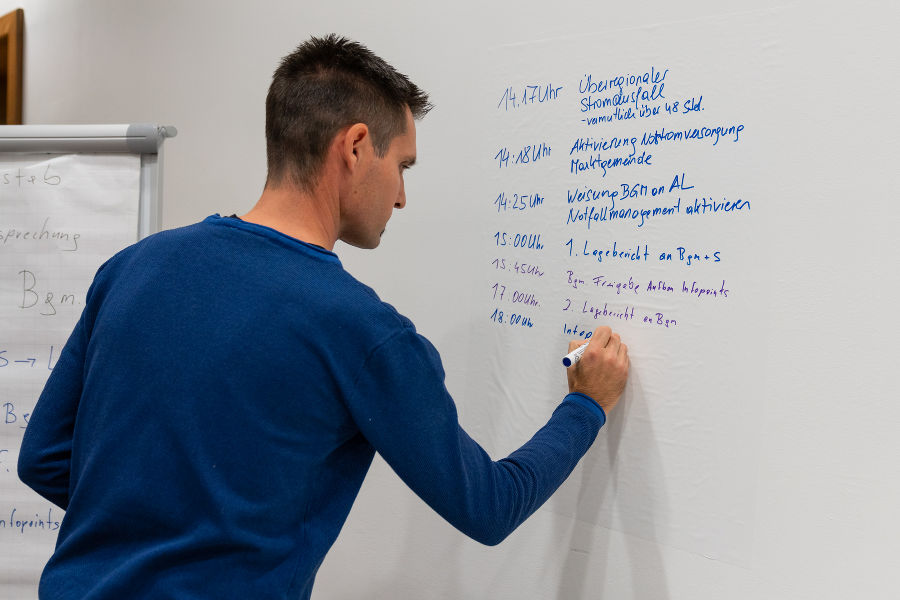 steb
sprechung
Bgm.
S → L
Bg
f.
nfopoints
14.17Uhr Überregionaler
Stromausfall
-vermutlich über 48 Std.
14:18Uhr Aktivierung Notstromversorgung
Marktgemeinde
14:25Uhr Weisung BGM an AL
Notfallmanagement aktivieren
15:00Uhr 1. Lagebericht an Bgm + S
15:45Uhr Bgm. Freigabe Aufbau Infopoints
17.00Uhr. 2. Lagebericht an Bgm
18:00Uhr Infop